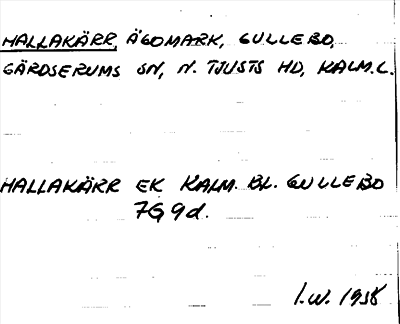 HALLAKÄRR, ÄGOMARK, GULLEBO,
GÄRDSERUMS SN, N. TJUSTS HD, KALM.L.
HALLAKÄRR EK KALM. BL. GULLEBO
7G 9d.
I.W. 1958